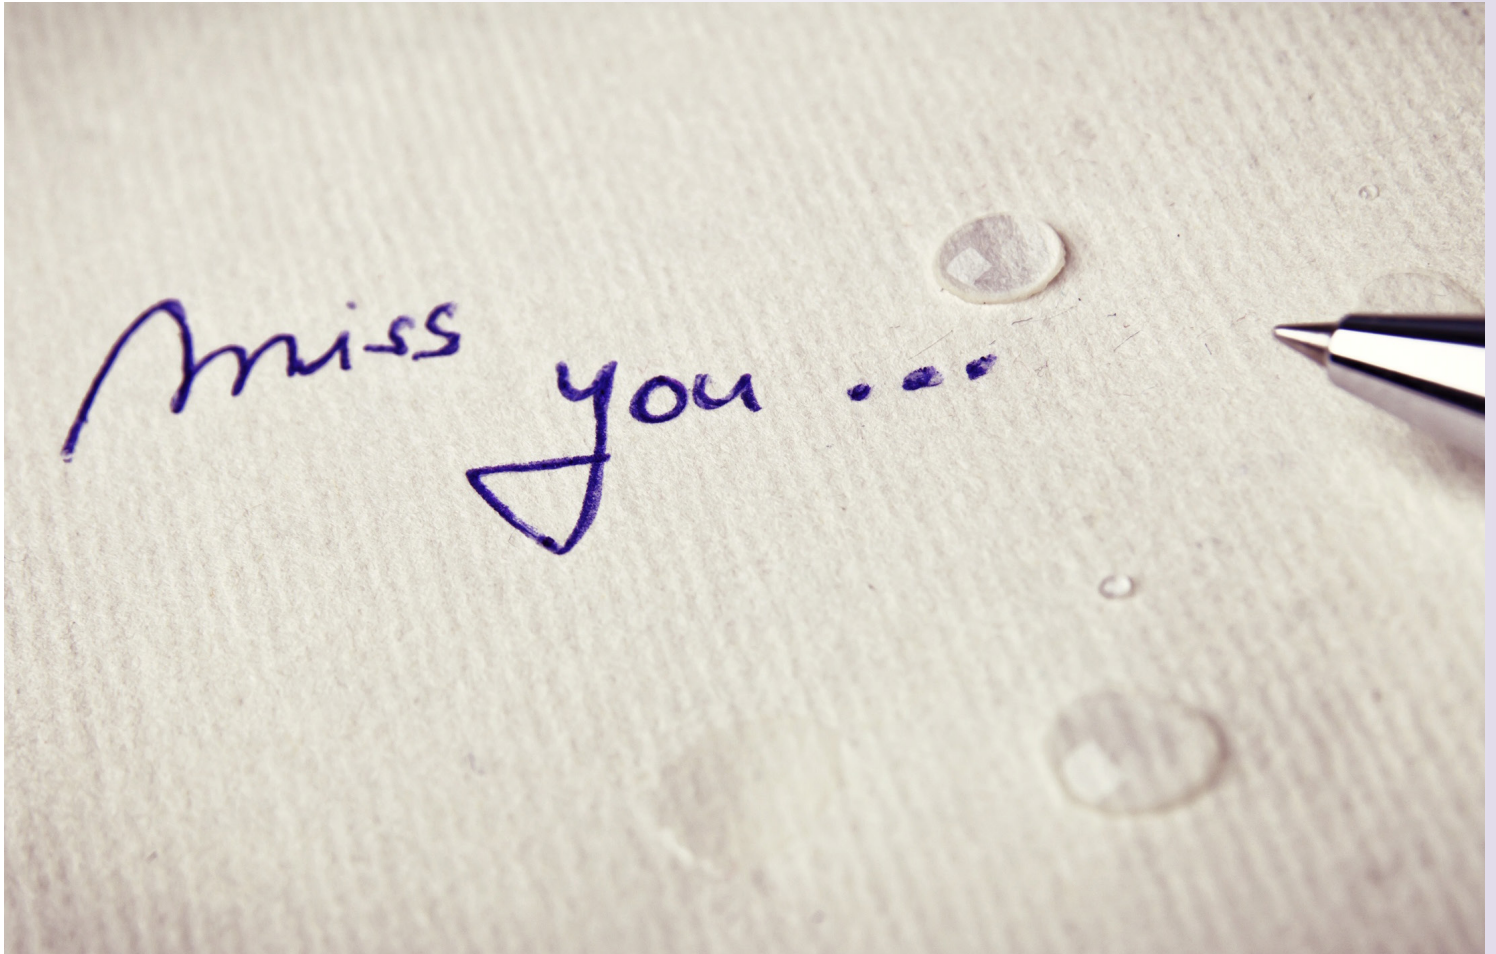 miss you...